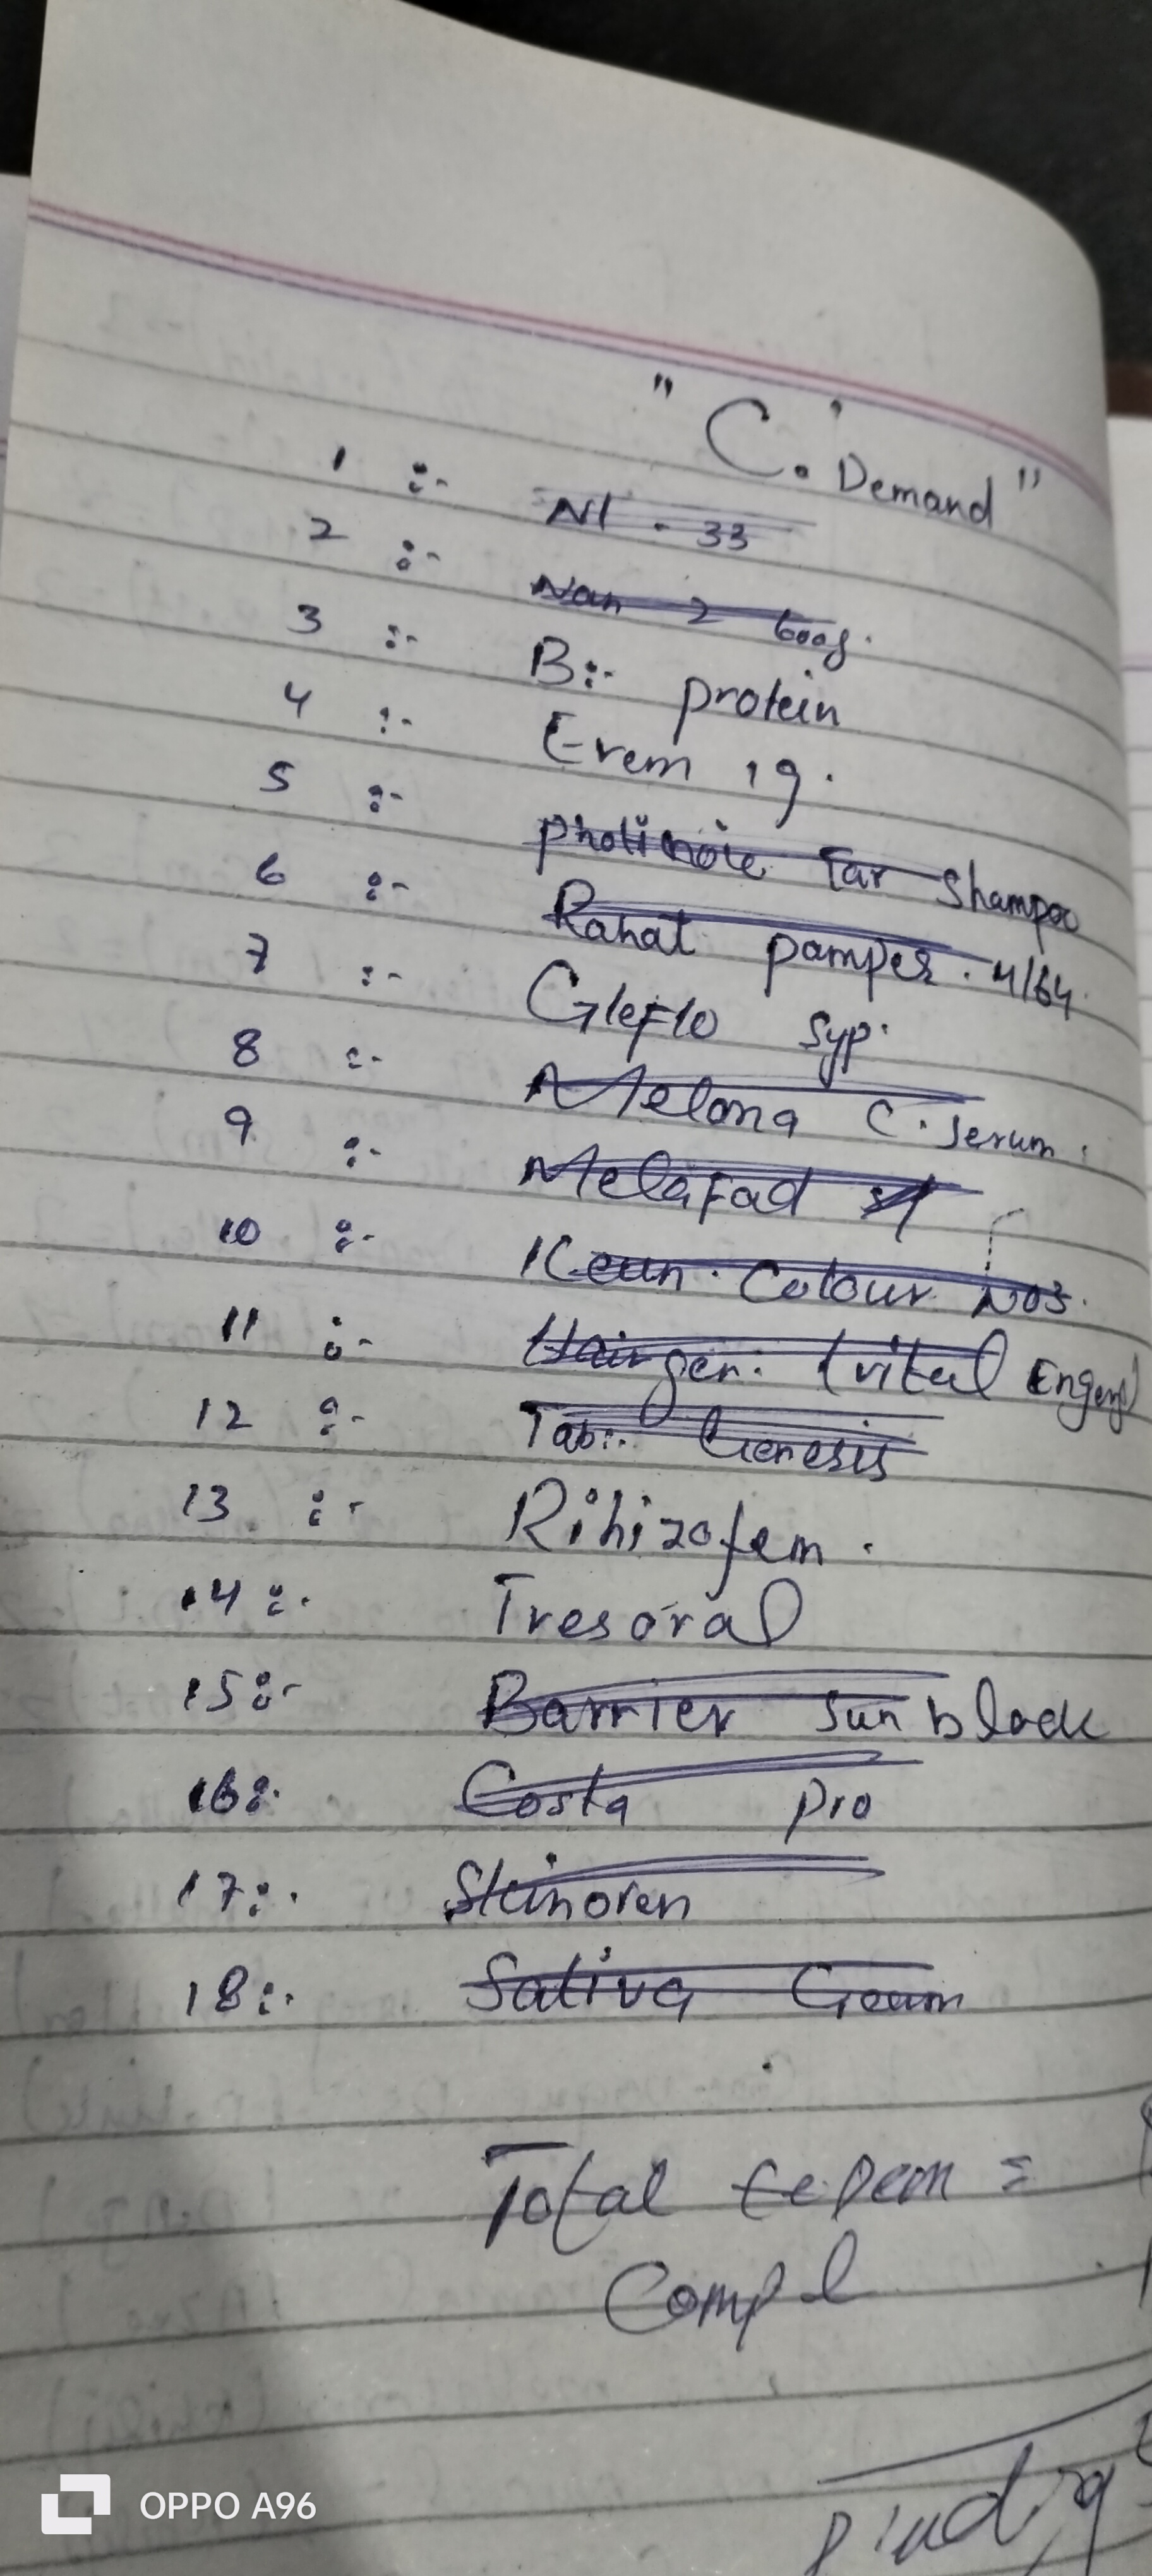 "C. Demand"
1 :- N1 - 33
2 :- Nan 2 600g.
3 :- B:- protein
4 :- Erem 1g.
5 :- Tar Shampoo
6 :- Rahat pampes. 4/64
7 :- Gleflo syp.
8 :- Melona C. serum.
9 :- Melafad
10 :- Kean. Colour No3.
11 :- Hairgen. (vital
12 :- Tab:. Genesis
13 :- Rihizofem.
14 :- Tresoral
15 :- Barrier Sun block
16 :- Costa pro
17 :- Skinoren
18 :- Sativa
Total =
Compl
OPPO A96